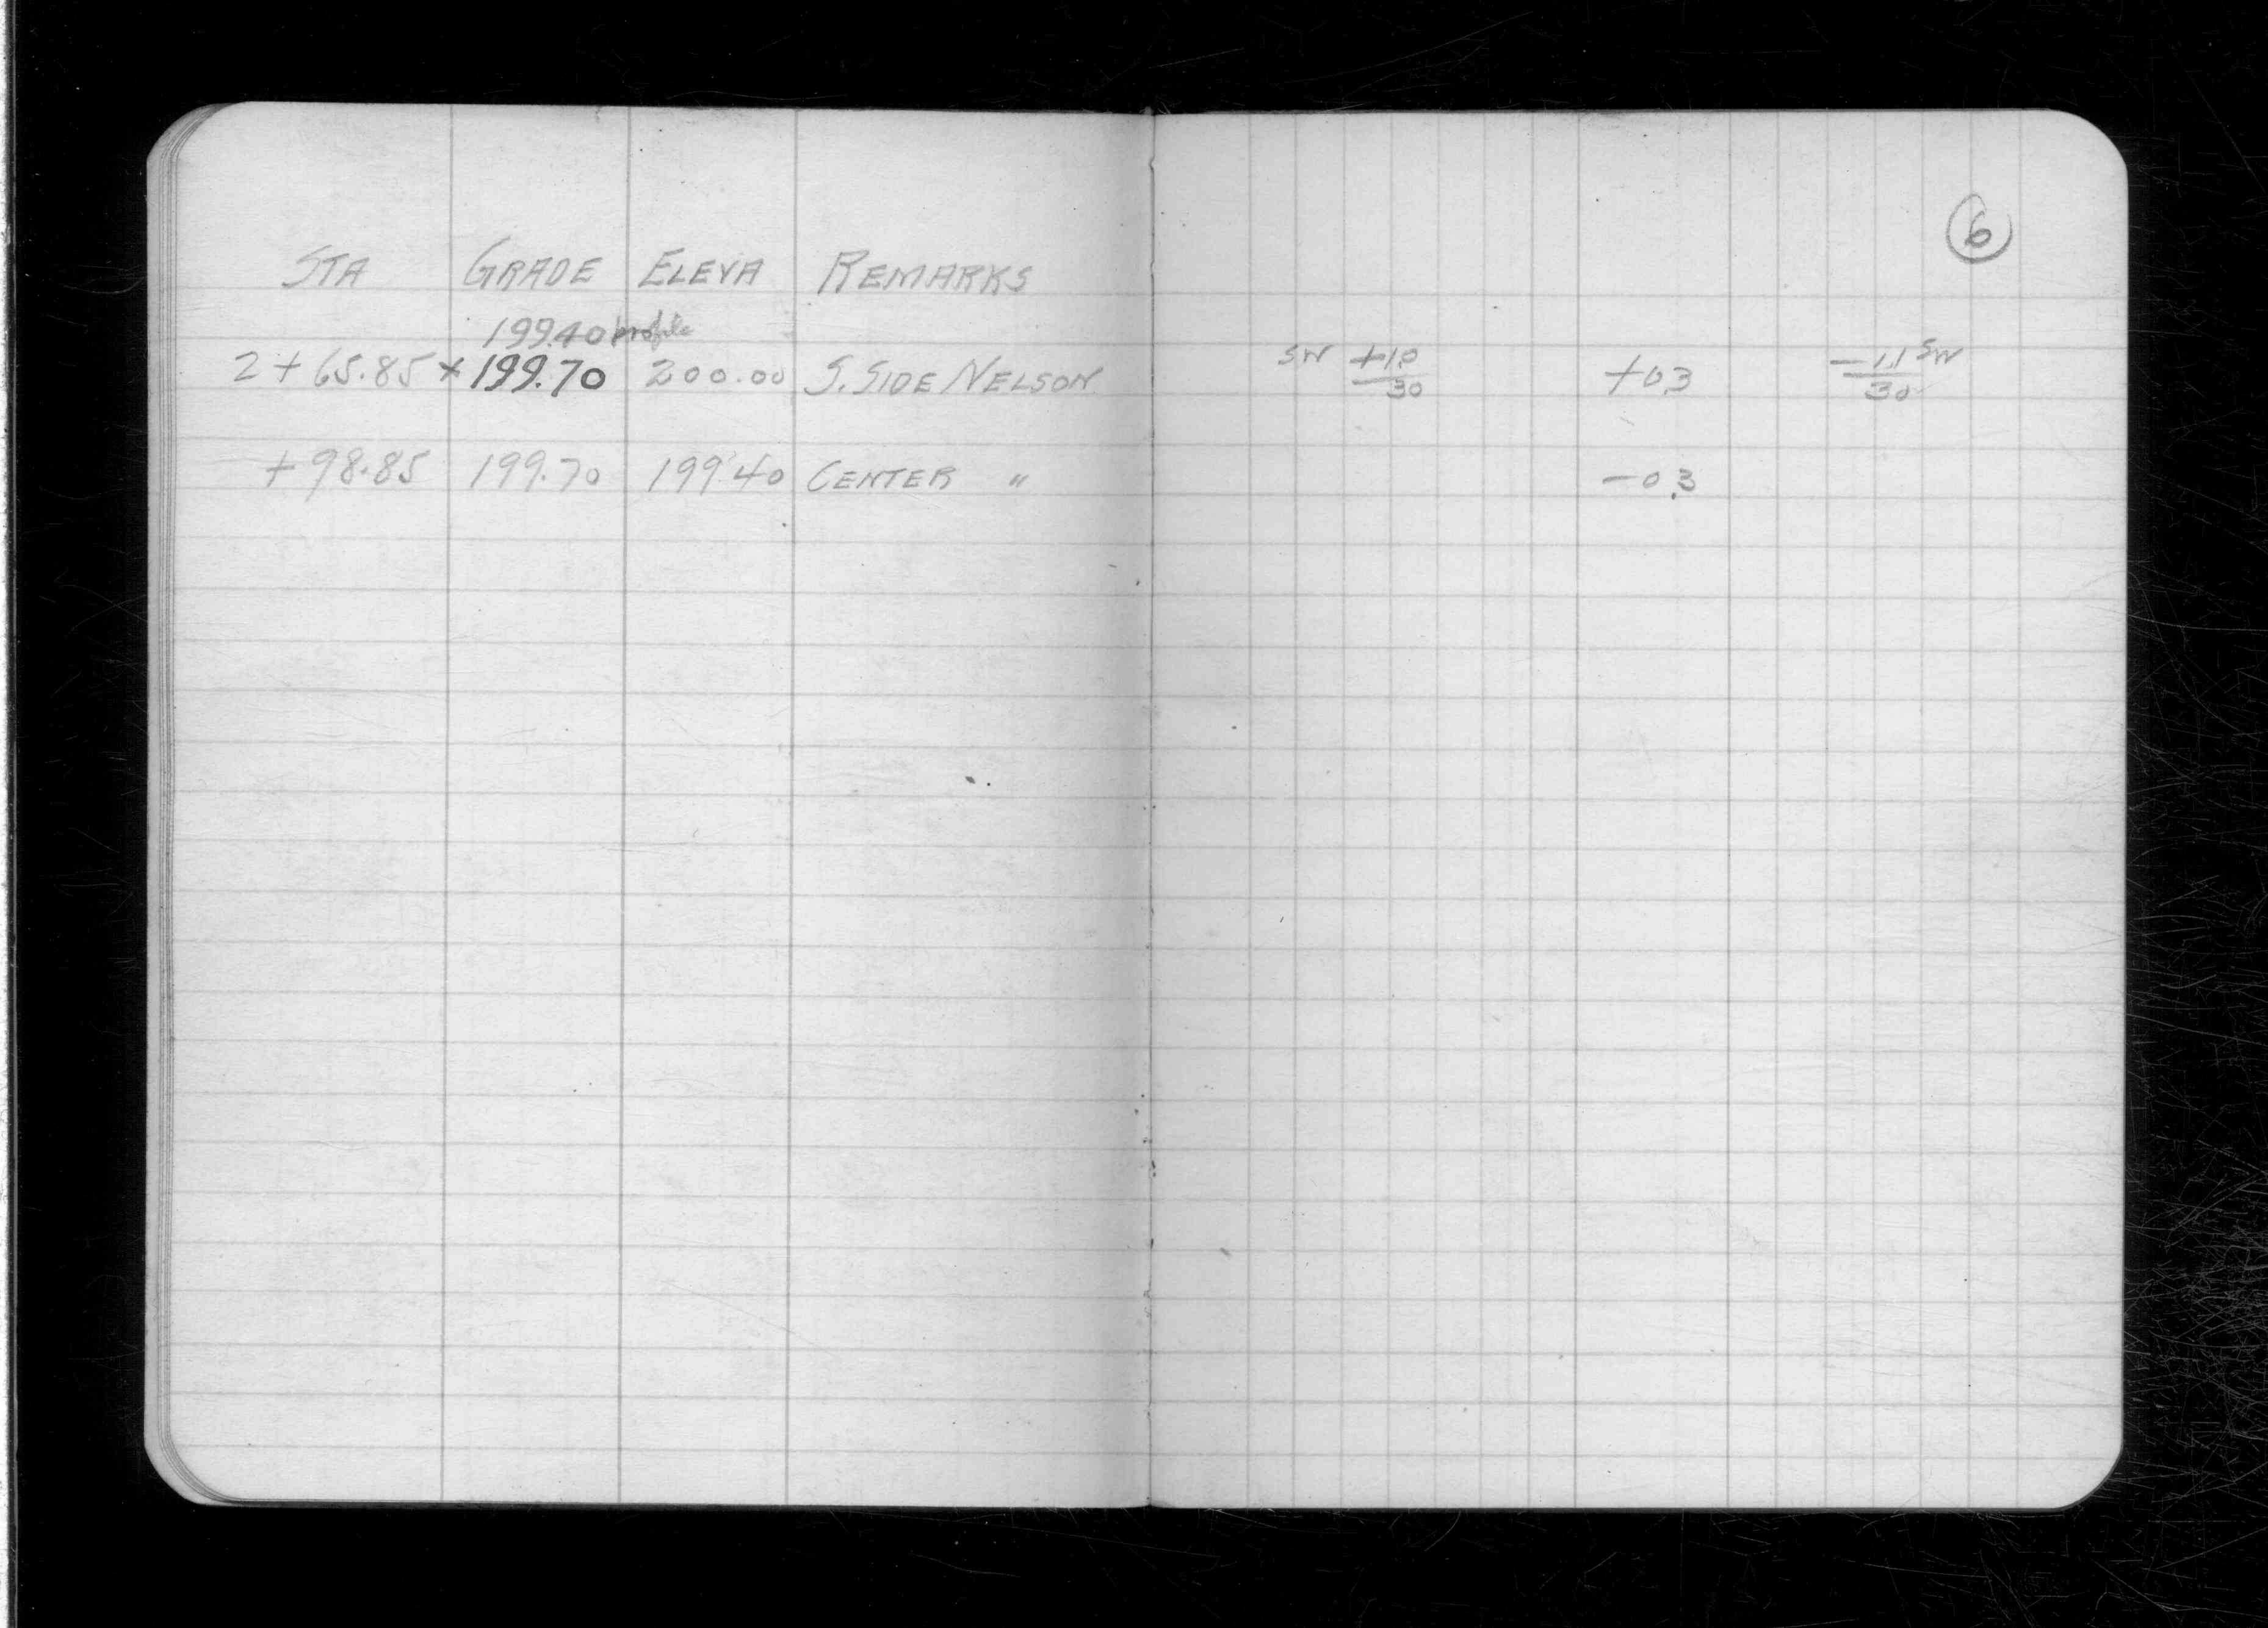 6
STA GRADE ELEVA REMARKS
199.40 profile
2+65.85 x 199.70 200.00 S. SIDE NELSON SW +1.0/30 +0.3 -1.1/30 SW
+98.85 199.70 199.40 CENTER " -0.3